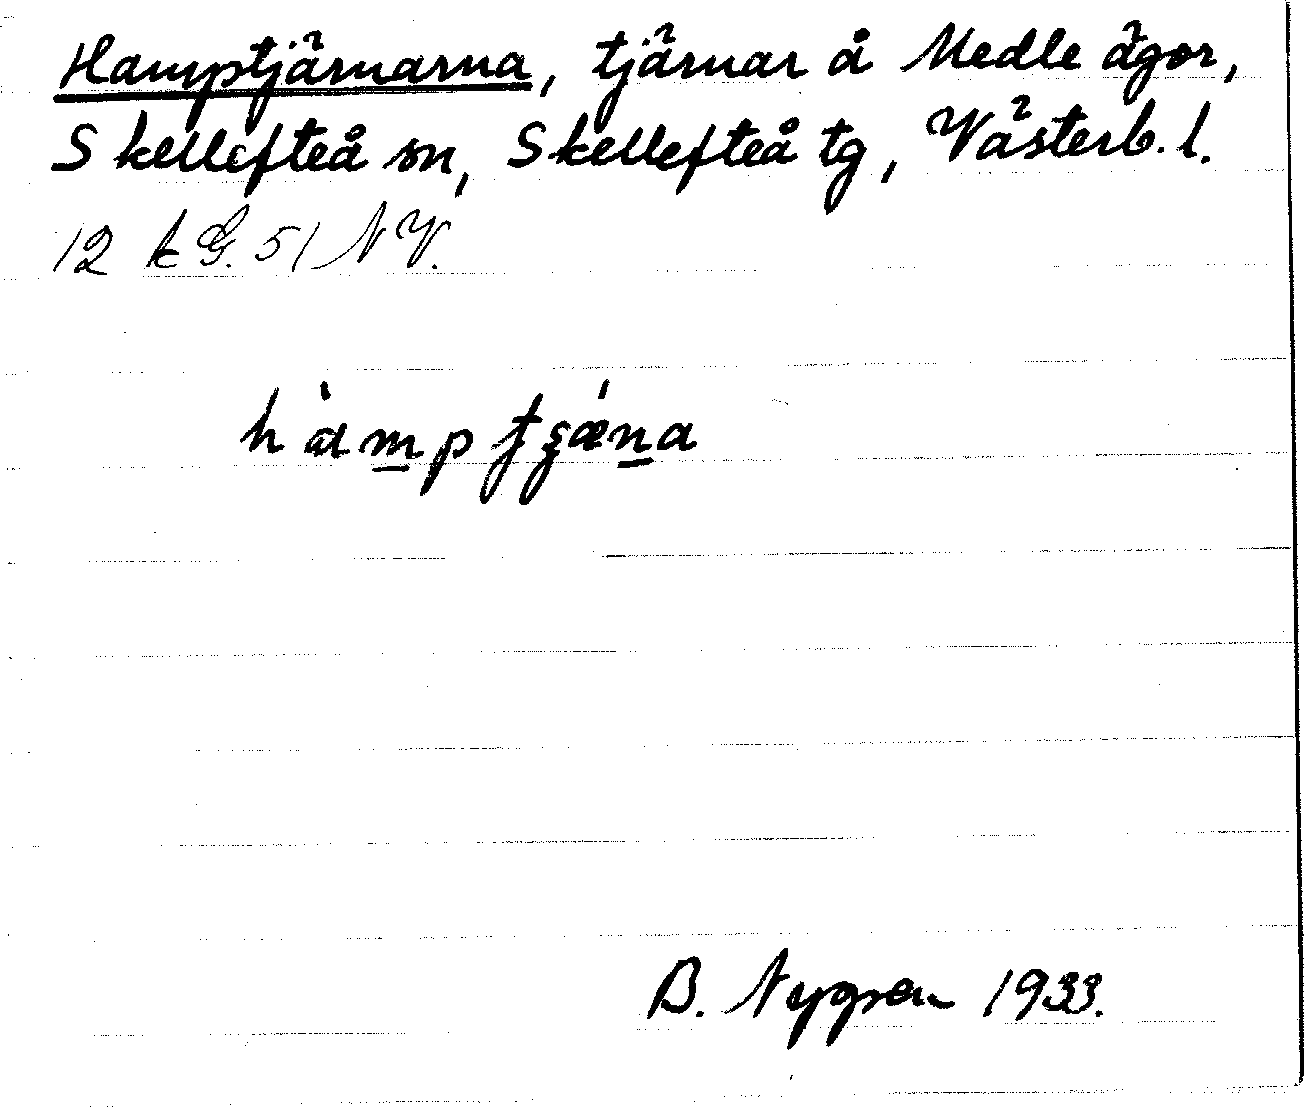 Hamptjärnarna, tjärnar å Medle ägor,
Skellefteå sn, Skellefteå tg, Västerb. l.
12 k G. 51 NV.
B. Nygren 1933.